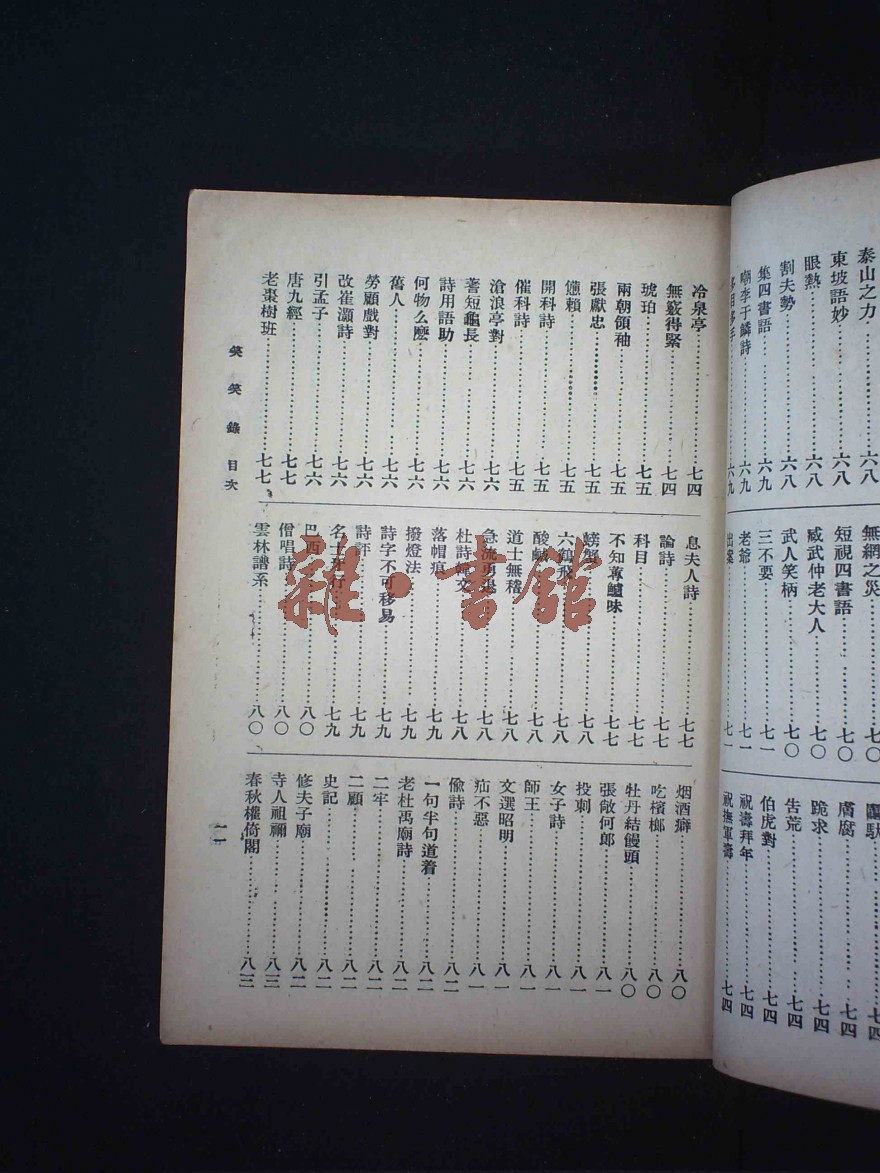 泰山之力……六八
東坡語妙……六八
眼熱……六八
割夫勢……六八
集四書語……六九
嘲李于鱗詩……六九
多目多手……六九
無網之災……七〇
短視四書語……七〇
臧武仲老大人……七〇
武人笑柄……七〇
三不要……七一
老爺……七一
出案……七一
七四
腐……七四
跪求……七四
告荒……七四
伯虎對……七四
祝濤拜年……七四
祝撫軍壽……七四
冷泉亭……七四
無竅得緊……七四
琥珀……七五
兩朝領袖……七五
張獻忠……七五
憊賴……七五
開科詩……七五
催科詩……七五
滄浪亭對……七六
蓍短龜長……七六
詩用語助……七六
何物么麼……七六
舊人……七六
勞顧戲對……七六
改崔灝詩……七六
引孟子……七六
唐九經……七七
老棗樹班……七七
息夫人詩……七七
論詩……七七
科目……七七
不知葷鱸味……七七
螃蟹……七八
六鶴飛……七八
酸鹹……七八
道士無稽……七八
急流勇退……七八
杜詩韓文……七八
落帽痕……七九
撥燈法……七九
詩字不可移易……七九
詩評……七九
名士不行……七九
巴西……八〇
僧唱詩……八〇
雲林譜系……八〇
烟酒癖……八〇
吃檳榔……八〇
牡丹結饅頭……八〇
張敞何郎……八一
投刺……八一
女子詩……八一
師王……八一
文選昭明……八一
疝不惡……八一
偷詩……八二
一句半句道着……八二
老杜禹廟詩……八二
二牢……八二
二顧……八二
史記……八二
修夫子廟……八二
寺人祖禰……八三
春秋權倚閣……八三
笑笑錄 目次
一一
雜·書館